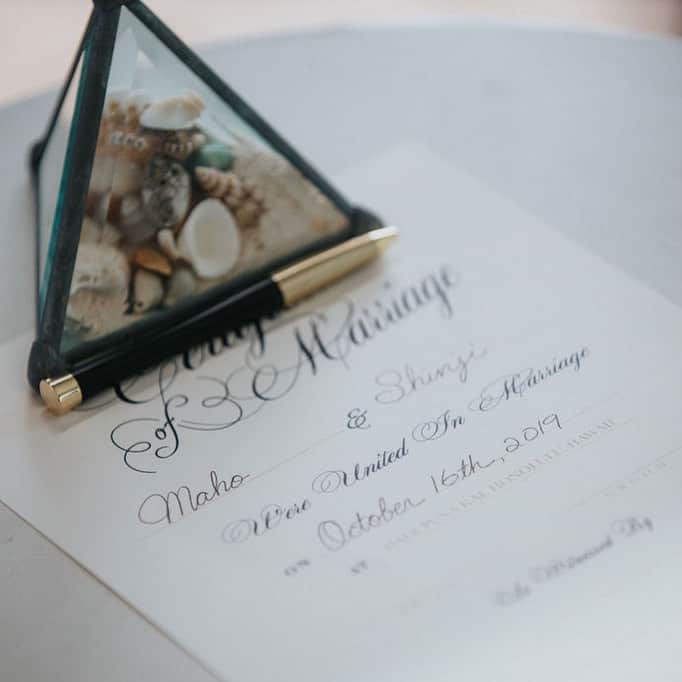 of Marriage
Maho & Shinji
Were United In Marriage
ON October 16th, 2019
AT HONOLULU, HAWAII